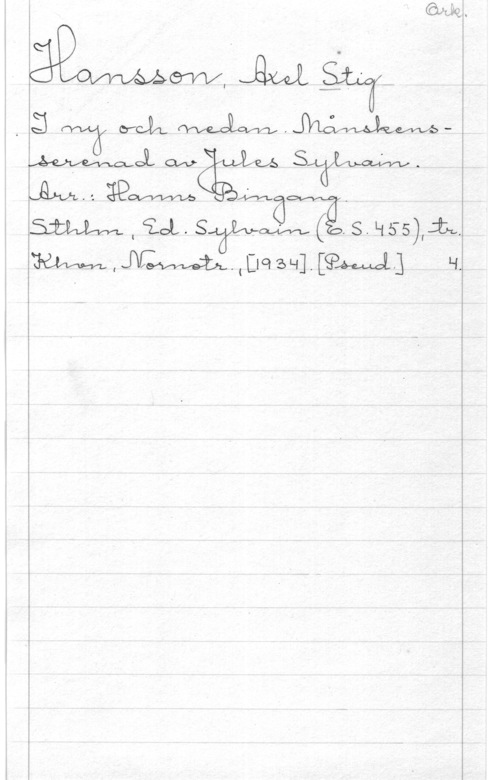 Ork.
Hansson, Axel Stig
I ny och nedan. Månskens-
serenad av Jules Sylvain.
Arr.: Hanns Bingang.
Sthlm, Ed. Sylvain (E. S. 455), tr.
Khvn, Nornotr., [1934]. [Pseud.] 4.